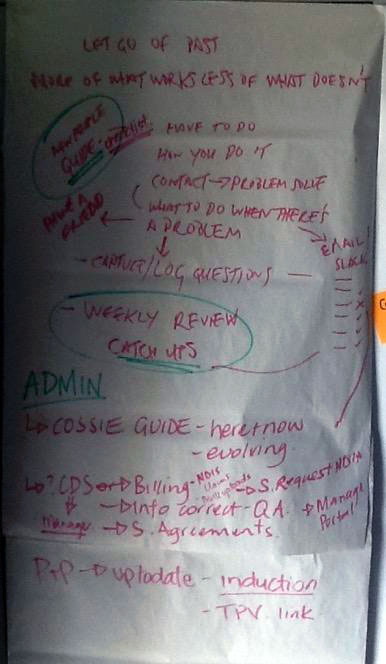 LET GO OF PAST
MORE OF WHAT WORKS LESS OF WHAT DOESN'T
GUIDE - checklist
HAVE TO DO
HOW YOU DO IT
CONTACT → PROBLEM SOLVE
WHAT TO DO WHEN THERE'S
A PROBLEM
EMAIL
SLACK
- CAPTURE/LOG QUESTIONS —
- WEEKLY REVIEW
CATCH UPS
ADMIN
COSSIE GUIDE - here + now
- evolving
? CDS or → Billing - NDIS
→ S. Request NDIA
→ Info correct - Q.A. → Manage
Portal
Manager → S. Agreements.
P+P → uptodate - induction
- TPV. link